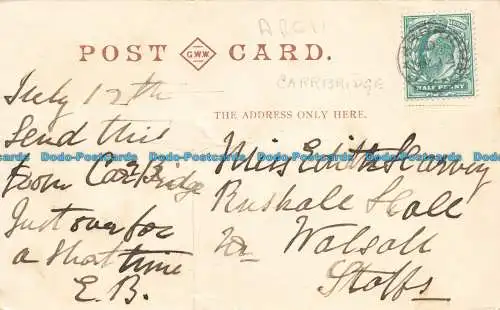 ARGY
POST G.W.W. CARD.
CARRBRIDGE
HALF PENNY
THE ADDRESS ONLY HERE.
July 12th
Send this
from Carbridge
Just over for
a short time
E.B.
Miss Edith Harvey
Rushall Hall
Nr Walsall
Staffs
Dodo-Postcards Dodo-Postcards Dodo-Postcards Dodo-Postcards Dodo-Postcards